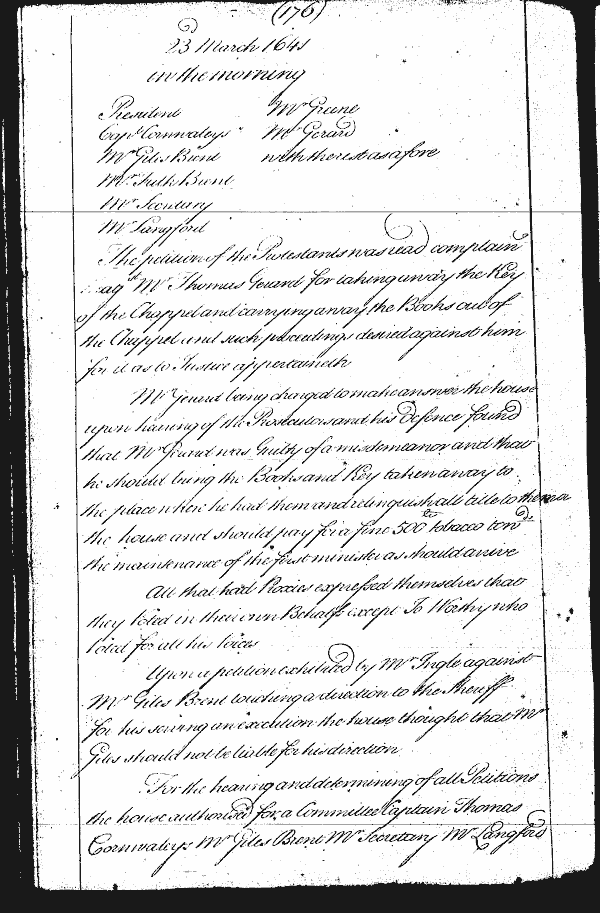 (176)
23 March 1641
in the morning
President Mr Greene
Capt Cornwaleys Mr Gerard
Mr Giles Brent with the rest as afore
Mr Fulk Brent
Mr Secretary
Mr Langford
The petition of the Protestants was read complain
agst Mr Thomas Gerard for taking away the Key
of the Chappel and carrying away the Books out of
the Chappel and such proceedings desired against him
for it as to Justice appertaineth
Mr Gerard being charged to make answer the house
upon hearing of the Prosecutors and his defence found
that Mr Gerard was Guilty of a misdemeanor and that
he should bring the Books and Key taken away to
the place where he had them and relinquish all title to them or
the house and should pay for a fine 500 lb tobacco towds
the maintenance of the first minister as should arrive
All that had Proxies expressed themselves that
they Voted in their own Behalfs except Jo Worthy who
Voted for all his Voices
Upon a petition exhibited by Mr Ingle against
Mr Giles Brent touching a direction to the Sheriff
for his serving an execution the house thought that Mr
Giles should not be liable for his direction
For the hearing and determining of all Petitions
the house authorised for a Committee Captain Thomas
Cornwaleys Mr Giles Brent Mr Secretary Mr Langford